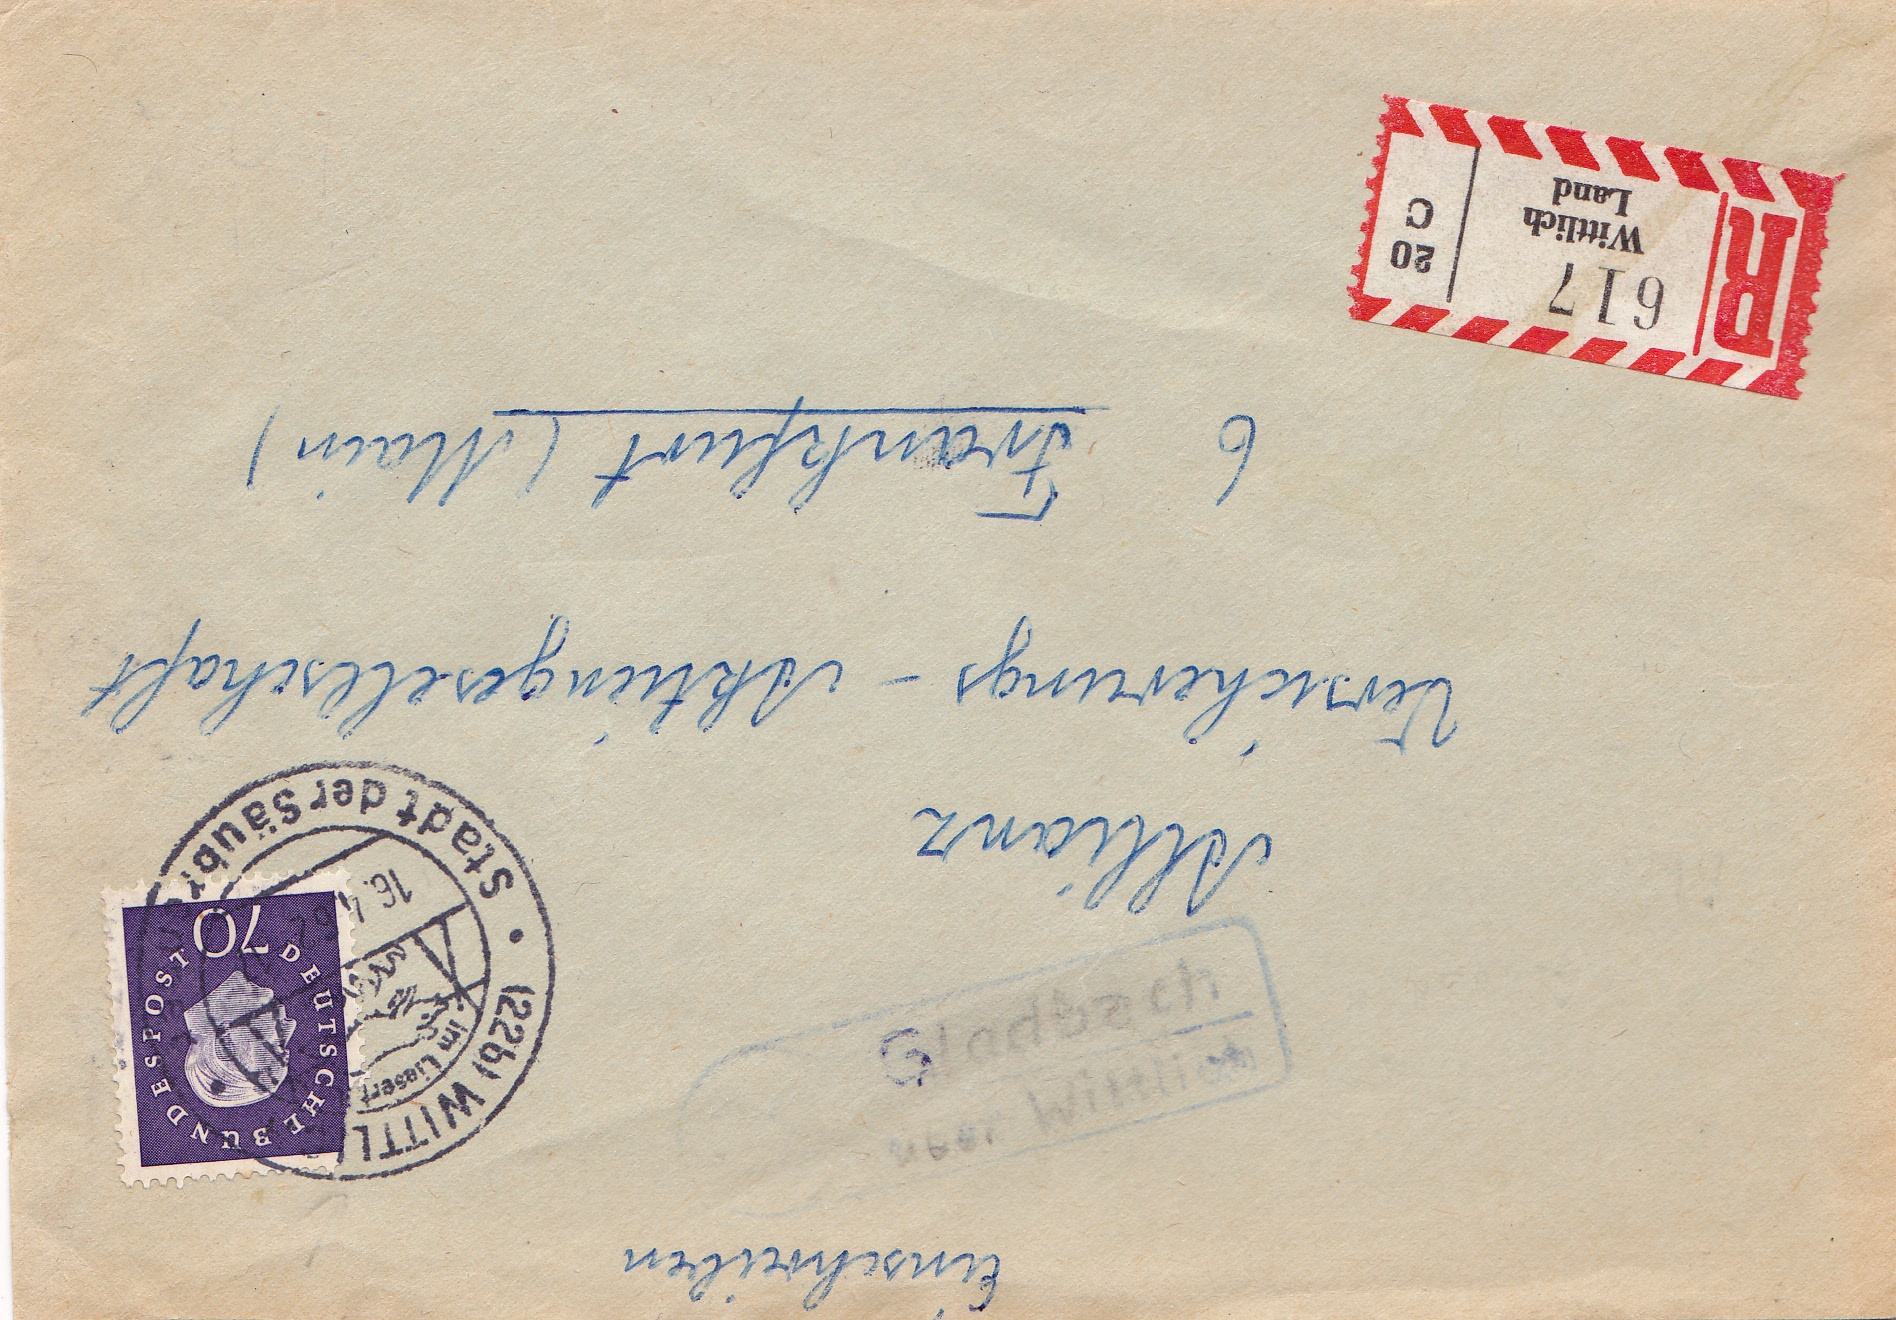 Einschreiben
Gladbach
über Wittlich
(22b) WITTL
im Liesert
16.4.62
Stadt der Säubr
DEUTSCHE BUNDESPOST
70
Allianz
Versicherungs - Aktiengesellschaft
6 Frankfurt (Main)
R
617
Wittlich
Land
20
C